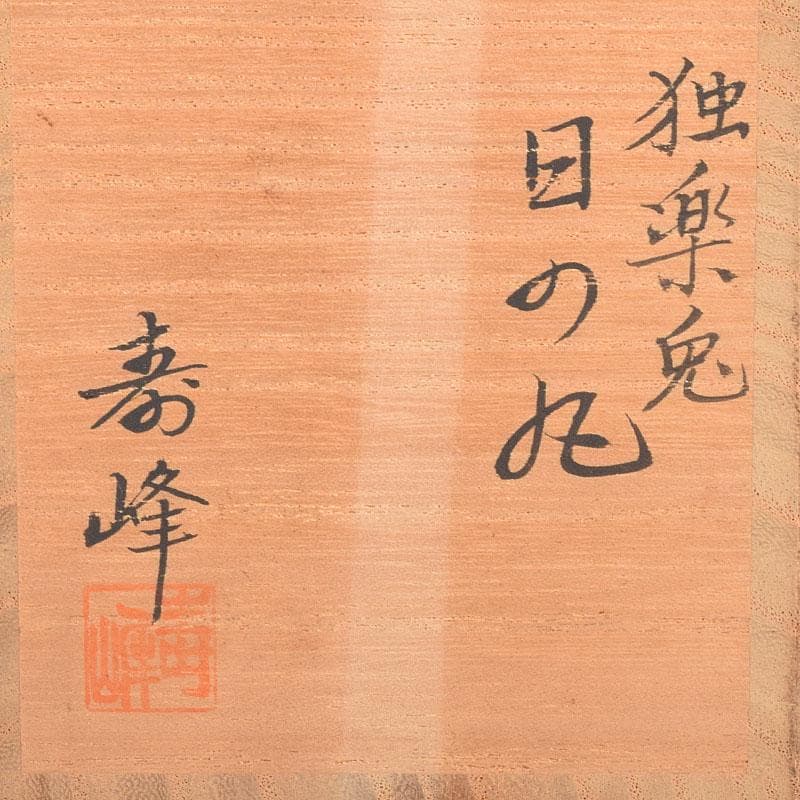 独楽兎
日の丸
寿峰